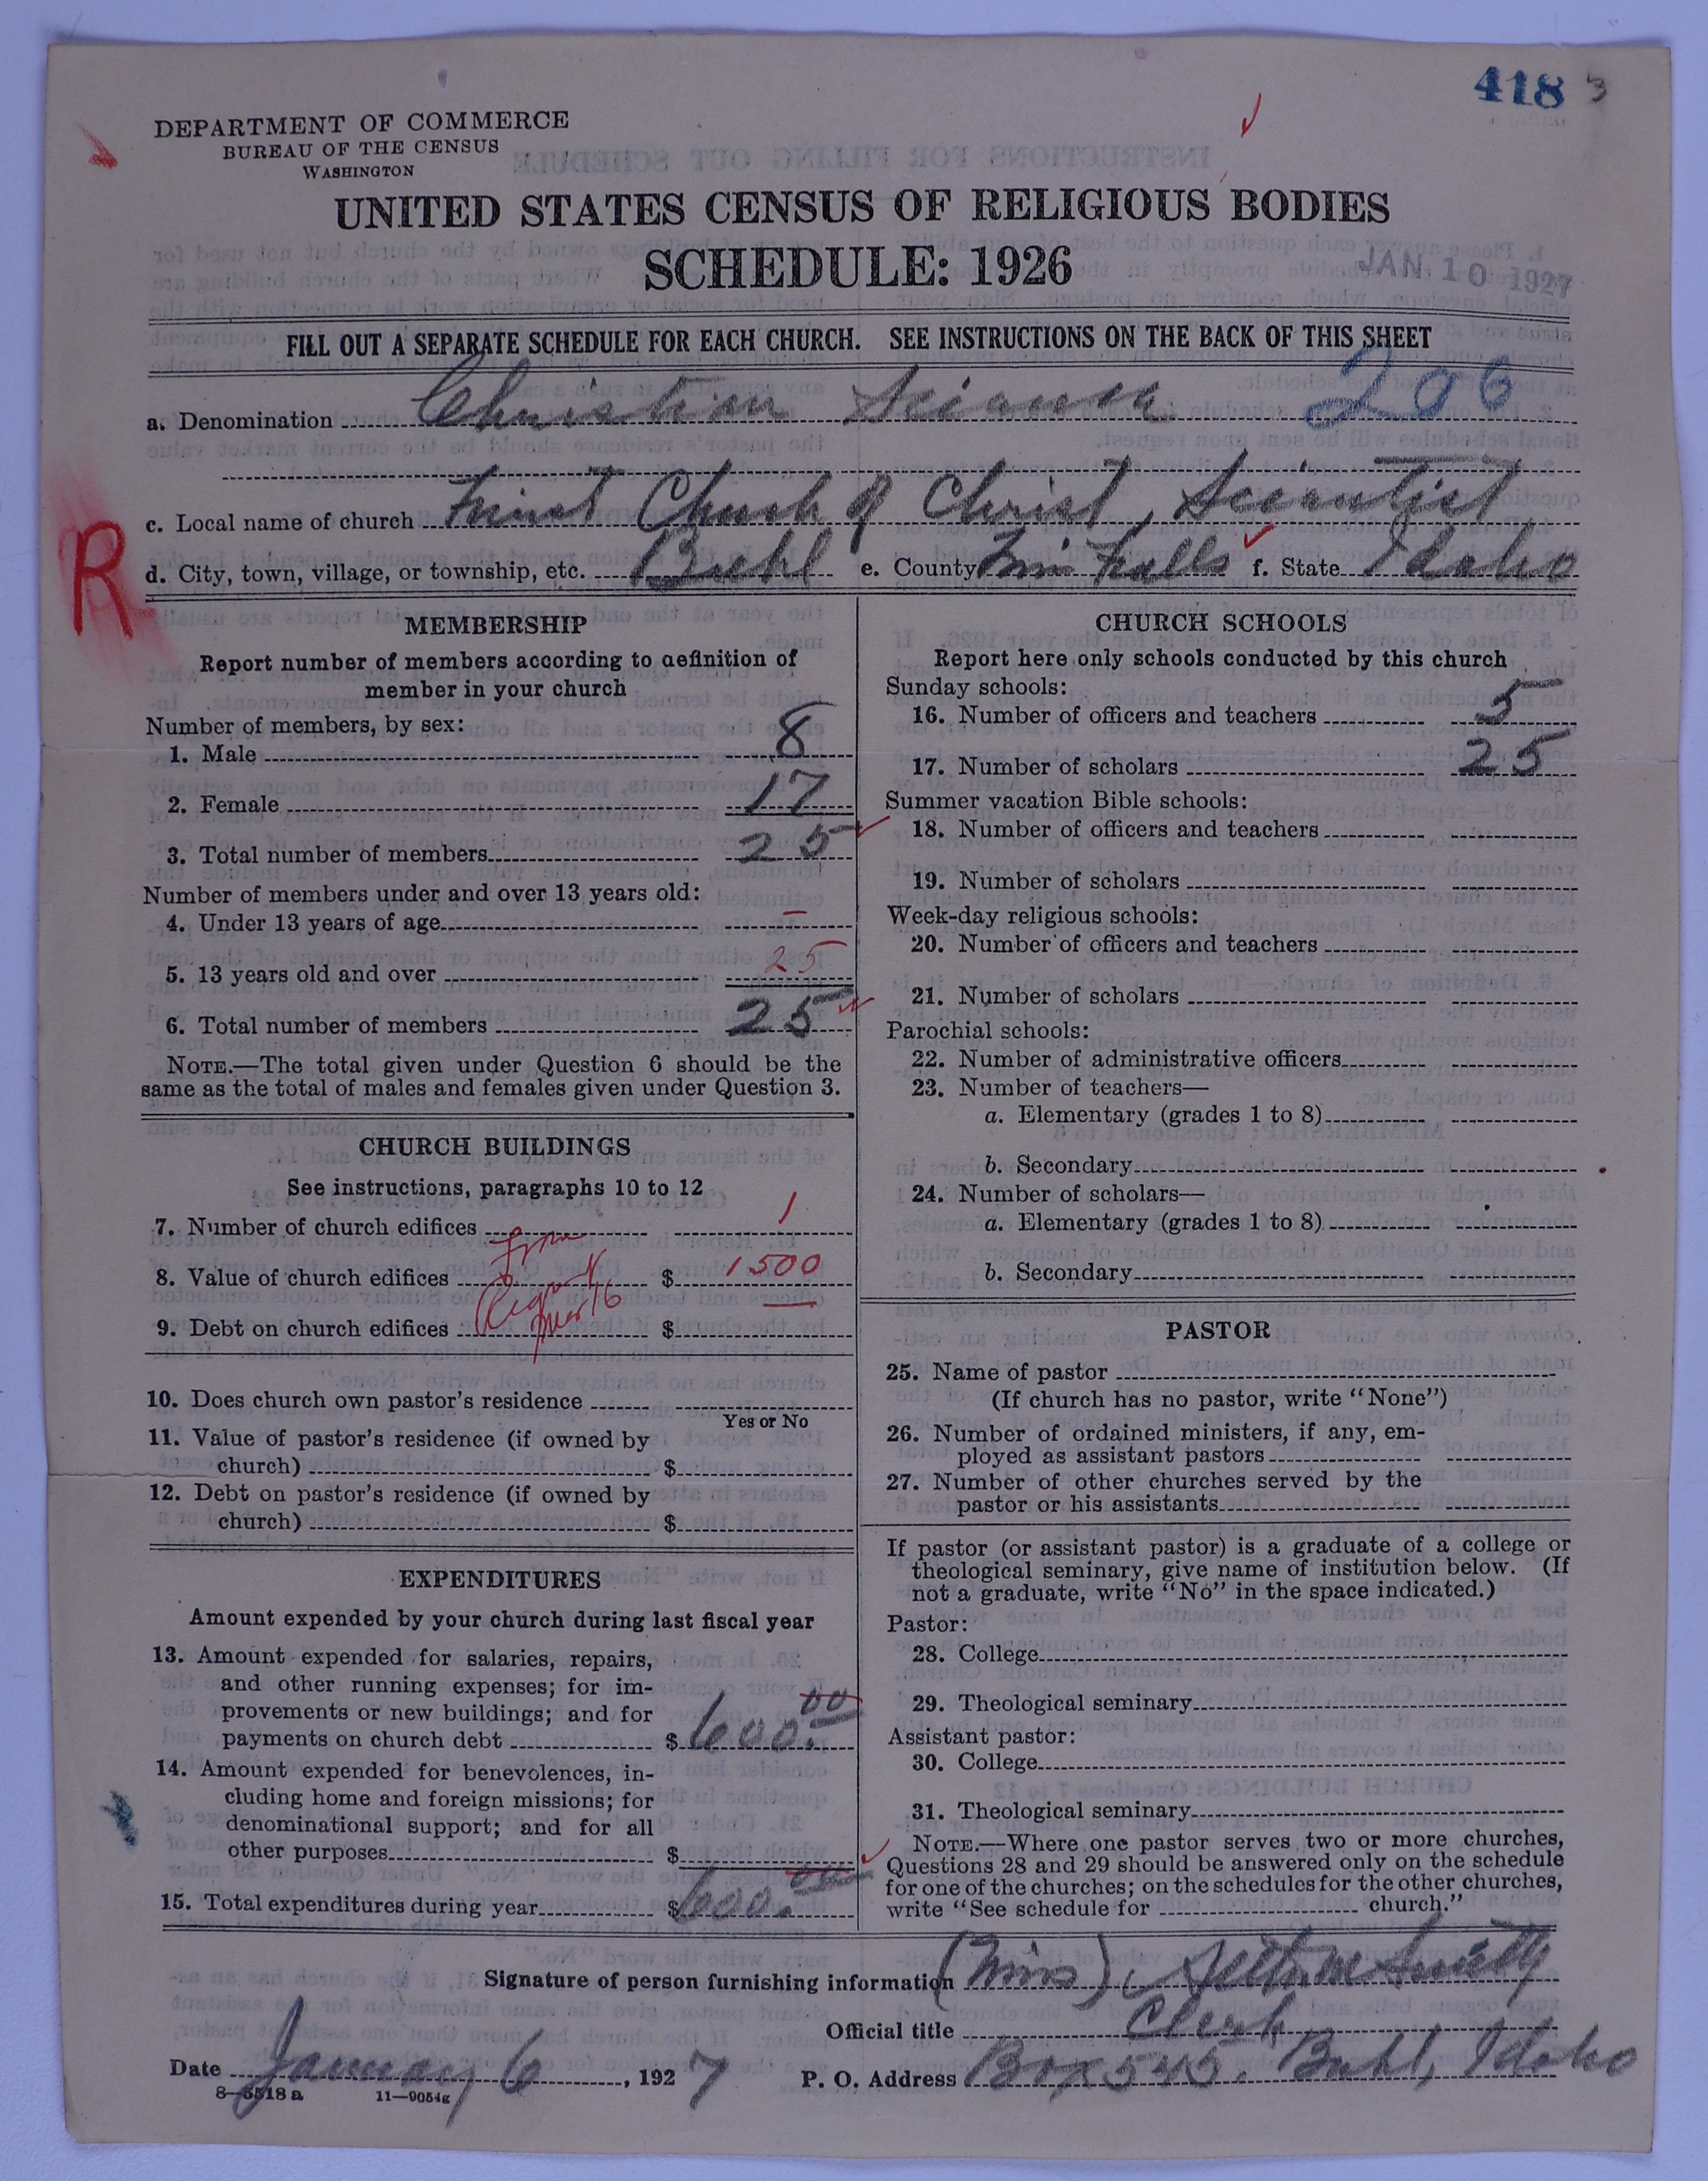 418 3
DEPARTMENT OF COMMERCE
BUREAU OF THE CENSUS
WASHINGTON
UNITED STATES CENSUS OF RELIGIOUS BODIES
SCHEDULE: 1926
JAN 10 1927
FILL OUT A SEPARATE SCHEDULE FOR EACH CHURCH. SEE INSTRUCTIONS ON THE BACK OF THIS SHEET
a. Denomination Christian Science 206
c. Local name of church First Church of Christ, Scientist
R
d. City, town, village, or township, etc. Buhl e. County Twin Falls f. State Idaho
MEMBERSHIP
Report number of members according to definition of
member in your church
Number of members, by sex:
1. Male 8
2. Female 17
3. Total number of members 25
Number of members under and over 13 years old:
4. Under 13 years of age –
5. 13 years old and over 25
6. Total number of members 25
NOTE.—The total given under Question 6 should be the
same as the total of males and females given under Question 3.
CHURCH BUILDINGS
See instructions, paragraphs 10 to 12
7. Number of church edifices 1
8. Value of church edifices $ 1500
9. Debt on church edifices $ —
10. Does church own pastor's residence
Yes or No
11. Value of pastor's residence (if owned by
church) $
12. Debt on pastor's residence (if owned by
church) $
EXPENDITURES
Amount expended by your church during last fiscal year
13. Amount expended for salaries, repairs,
and other running expenses; for im-
provements or new buildings; and for
payments on church debt $ 600.00
14. Amount expended for benevolences, in-
cluding home and foreign missions; for
denominational support; and for all
other purposes $
15. Total expenditures during year $ 600.00
CHURCH SCHOOLS
Report here only schools conducted by this church
Sunday schools:
16. Number of officers and teachers 5
17. Number of scholars 25
Summer vacation Bible schools:
18. Number of officers and teachers
19. Number of scholars
Week-day religious schools:
20. Number of officers and teachers
21. Number of scholars
Parochial schools:
22. Number of administrative officers
23. Number of teachers—
a. Elementary (grades 1 to 8)
b. Secondary
24. Number of scholars—
a. Elementary (grades 1 to 8)
b. Secondary
PASTOR
25. Name of pastor
(If church has no pastor, write "None")
26. Number of ordained ministers, if any, em-
ployed as assistant pastors
27. Number of other churches served by the
pastor or his assistants
If pastor (or assistant pastor) is a graduate of a college or
theological seminary, give name of institution below. (If
not a graduate, write "No" in the space indicated.)
Pastor:
28. College
29. Theological seminary
Assistant pastor:
30. College
31. Theological seminary
NOTE.—Where one pastor serves two or more churches,
Questions 28 and 29 should be answered only on the schedule
for one of the churches; on the schedules for the other churches,
write "See schedule for church."
Signature of person furnishing information (Miss)
Official title Clerk
Date January 6, 1927 P. O. Address Box 545. Buhl, Idaho
8—5518 a 11—9054g